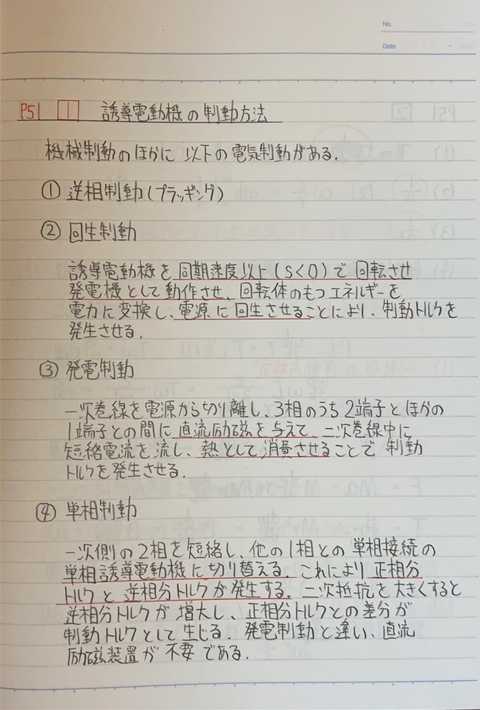 No.
Date
P51 1 誘導電動機の制動方法
機械制動のほかに 以下の電気制動がある.
① 逆相制動(プラッギング)
② 回生制動
誘導電動機を同期速度以上(S<0)で回転させ
発電機として動作させ、回転体のもつエネルギーを
電力に変換し、電源に回生させることにより、制動トルクを
発生させる.
③ 発電制動
一次巻線を電源から切り離し、3相のうち2端子とほかの
1端子との間に直流励磁を与えて、二次巻線中に
短絡電流を流し、熱として消費させることで制動
トルクを発生させる.
④ 単相制動
一次側の2相を短絡し、他の1相との単相接続の
単相誘導電動機に切り替える. これにより正相分
トルクと逆相分トルクが発生する. 二次抵抗を大きくすると
逆相分トルクが増大し、正相分トルクとの差分が
制動トルクとして生じる. 発電制動と違い、直流
励磁装置が不要である.